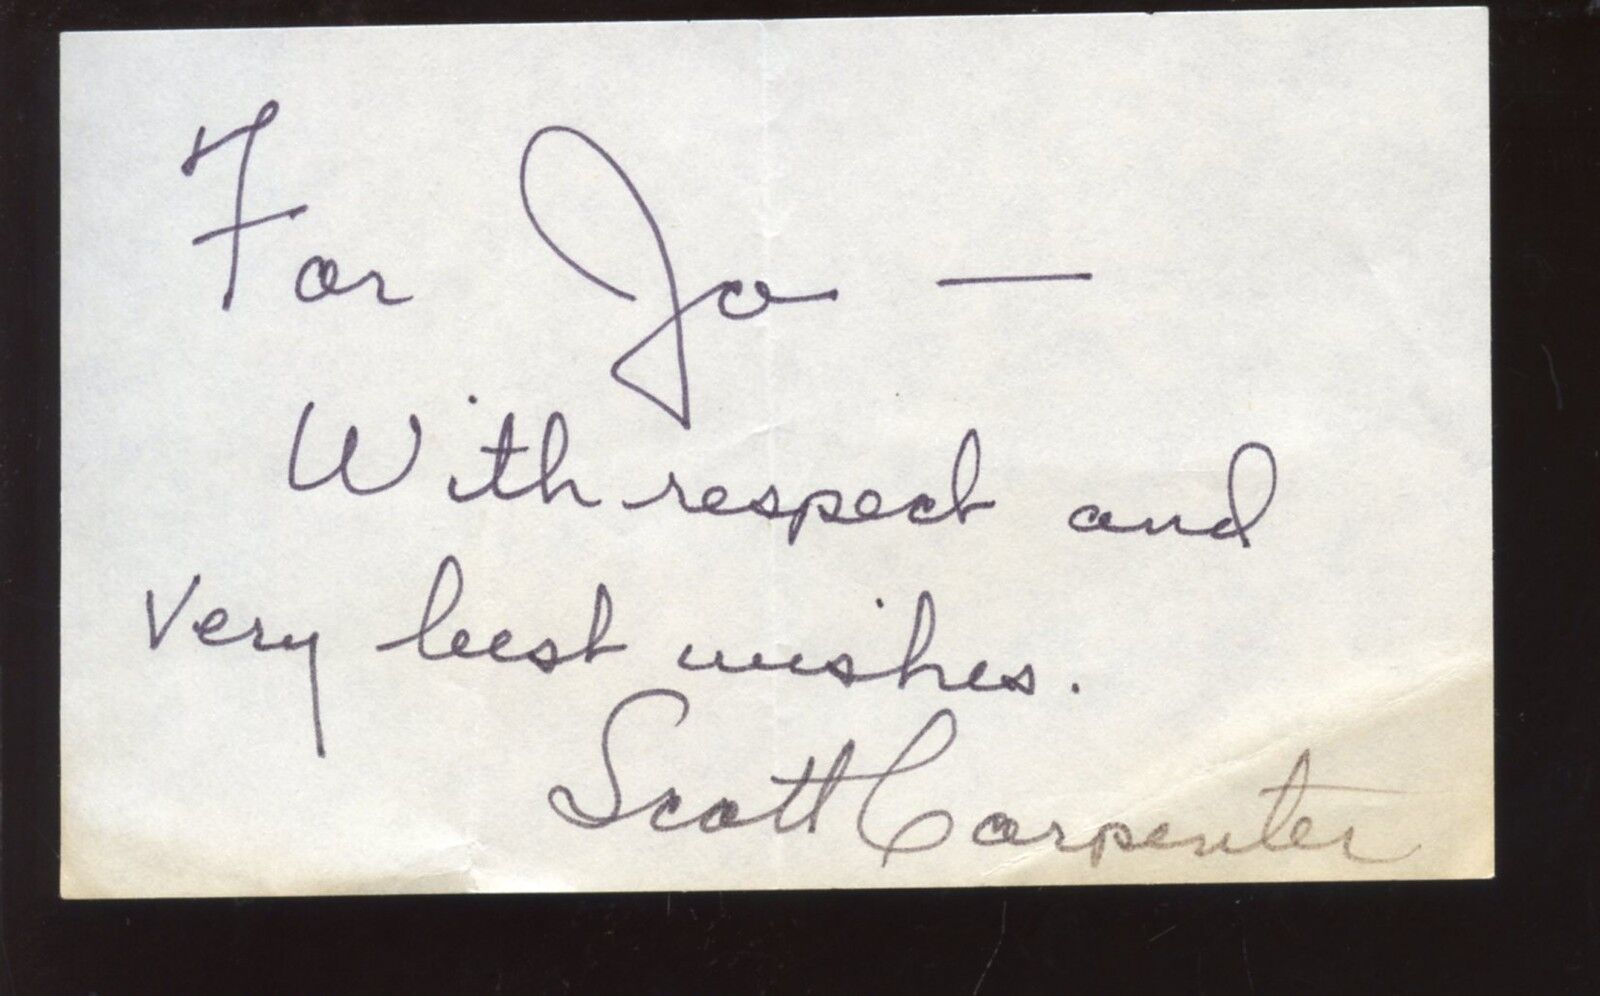 For Jo —
With respect and
very best wishes.
Scott Carpenter